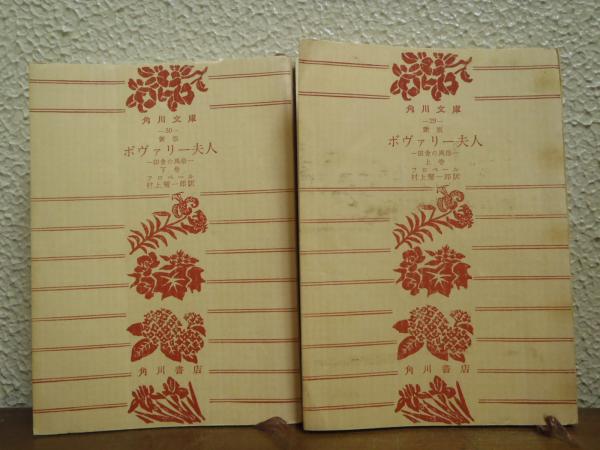 角川文庫
—30—
新版
ボヴァリー夫人
—田舎の風俗—
下巻
フロベール
村上菊一郎訳
角川書店
角川文庫
—29—
新版
ボヴァリー夫人
—田舎の風俗—
上巻
フロベール
村上菊一郎訳
角川書店